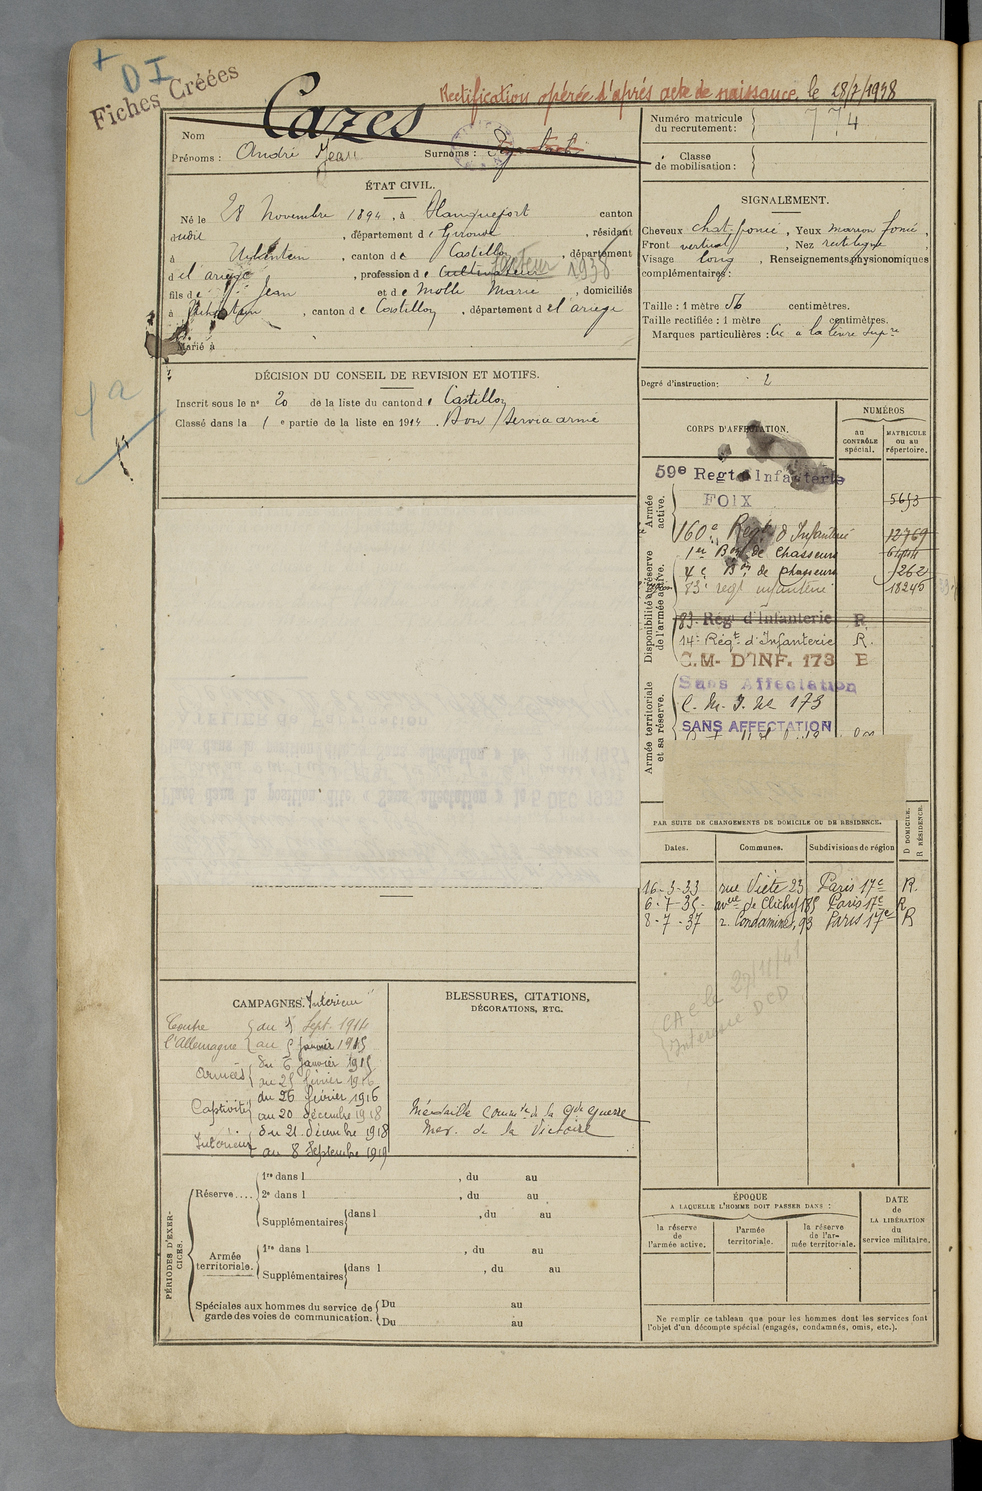 + DI
Fiches Créées
Rectification opérée d'après acte de naissance, le 28/7/1938
Cazes
Nom
Prénoms : André Jean Surnoms :
ÉTAT CIVIL.
Né le 28 Novembre 1894, à Blanquefort canton
dudit, département de Gironde, résidant
à Uchentein, canton de Castillon, département
d el ariège, profession de Cultivateur facteur 1938
fils de Jean et de Molle Marie, domiciliés
à Uchentein, canton de Castillon, département d el ariège
Marié à
DÉCISION DU CONSEIL DE REVISION ET MOTIFS.
Inscrit sous le n° 20 de la liste du canton de Castillon
Classé dans la 1 e partie de la liste en 1914. Bon / Service armé
1a
CAMPAGNES. Intérieur
Contre l'Allemagne
du Sept. 1914
au 5 Janvier 1915
Armées
du 6 Janvier 1915
au 25 février 1916
Captivité
du 26 février 1916
au 20 décembre 1918
Intérieur
du 21 décembre 1918
au 8 Septembre 1919
BLESSURES, CITATIONS,
DÉCORATIONS, ETC.
Médaille comm ve de la Gde guerre
Mé. de la Victoire
PÉRIODES D'EXERCICES.
Réserve....
1re dans l , du au
2e dans l , du au
Supplémentaires dans l , du au
Armée territoriale.
1re dans l , du au
Supplémentaires dans l , du au
Spéciales aux hommes du service de garde des voies de communication.
Du au
Du au
Numéro matricule du recrutement : 774
Classe de mobilisation :
SIGNALEMENT.
Cheveux chat. foncé, Yeux marron foncé,
Front vertical, Nez rectiligne,
Visage long, Renseignements physionomiques
complémentaires :
Taille : 1 mètre 56 centimètres.
Taille rectifiée : 1 mètre centimètres.
Marques particulières : Cic à la lèvre supre
Degré d'instruction : 2
CORPS D'AFFECTATION.
NUMÉROS
au CONTRÔLE spécial.
MATRICULE ou au répertoire.
Armée active.
Disponibilité et réserve de l'armée active.
Armée territoriale et sa réserve.
59e Regt d'Infanterie
FOIX 5653
160e Regt d'Infanterie 12769
1er Bon de Chasseurs
4e Bon de chasseurs 262
83e régt infanterie 18246
83e Rég d'Infanterie R
14e Régt d'Infanterie R.
C.M. D'INF. 173 E
Sans Affectation
C. M. I. No 173
SANS AFFECTATION
PAR SUITE DE CHANGEMENTS DE DOMICILE OU DE RÉSIDENCE.
Dates. Communes. Subdivisions de région
D DOMICILE. R RÉSIDENCE.
16-3-33 rue Viète 23 Paris 17e R.
6-7-35 - avue de Clichy 185 Paris 17e R
8-7-37 r. Condamines, 93 Paris 17e R
CAC le 27/11/41
Intéressé DCD
ÉPOQUE
A LAQUELLE L'HOMME DOIT PASSER DANS :
la réserve de l'armée active.
l'armée territoriale.
la réserve de l'armée territoriale.
DATE de LA LIBÉRATION du service militaire.
Ne remplir ce tableau que pour les hommes dont les services font
l'objet d'un décompte spécial (engagés, condamnés, omis, etc.).